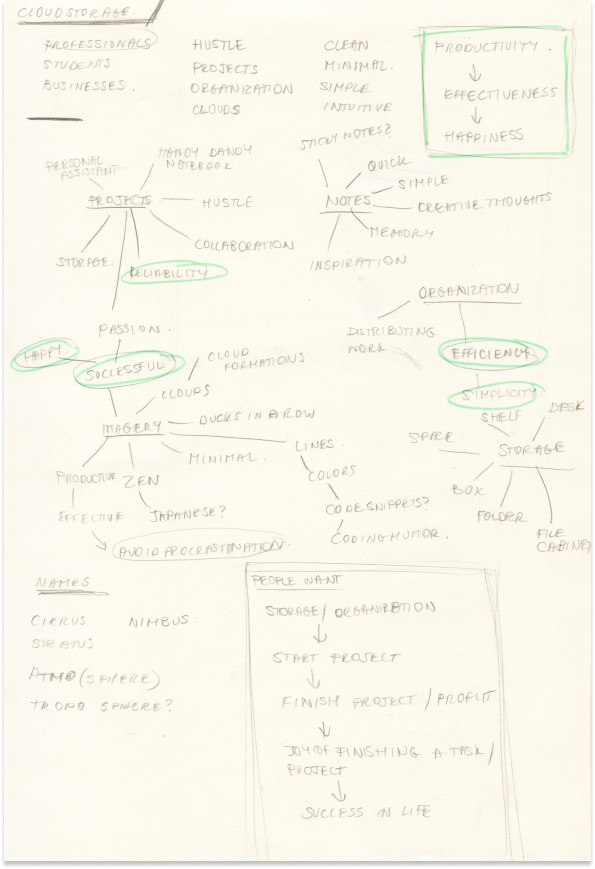 CLOUD STORAGE.
PROFESSIONALS
STUDENTS
BUSINESSES.
HUSTLE
PROJECTS
ORGANIZATION
CLOUDS
CLEAN
MINIMAL.
SIMPLE
INTUITIVE
PRODUCTIVITY.
EFFECTIVENESS
HAPPINESS
PERSONAL
ASSISTANT
HANDY DANDY
NOTEBOOK
PROJECTS
HUSTLE
COLLABORATION
STORAGE.
RELIABILITY
PASSION.
STICKY NOTES?
QUICK
SIMPLE
NOTES
CREATIVE THOUGHTS
MEMORY
INSPIRATION
ORGANIZATION
DISTRIBUTING
WORK
EFFICIENCY
SIMPLICITY.
HAPPY.
SUCCESSFUL
CLOUD
FORMATIONS.
CLOUDS
IMAGERY
DUCKS IN A ROW
MINIMAL.
LINES.
COLORS
CODE SNIPPETS?
CODING HUMOR.
PRODUCTIVE
ZEN
EFFECTIVE
JAPANESE?
AVOID PROCRASTINATION.
SHELF
DESK
SPACE
STORAGE
BOX
FOLDER
FILE
CABINET
NAMES
CIRRUS NIMBUS.
STRATUS
ATMO (SPHERE)
TROPO SPHERE?
PEOPLE WANT
STORAGE/ORGANIZATION
START PROJECT
FINISH PROJECT / PROFIT
JOY OF FINISHING A TASK/
PROJECT
SUCCESS IN LIFE